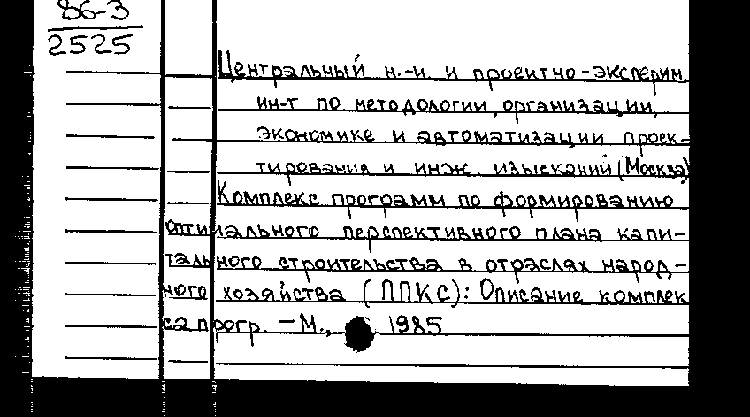 86-3
2525
Центральный н.-и. и проектно-эксперим.
ин-т по методологии, организации,
экономике и автоматизации проек-
тирования и инж. изысканий (Москва)
Комплекс программ по формированию
оптимального перспективного плана капи-
тального строительства в отраслях народ-
ного хозяйства (ППКС): Описание комплек
са прогр. – М., 1985